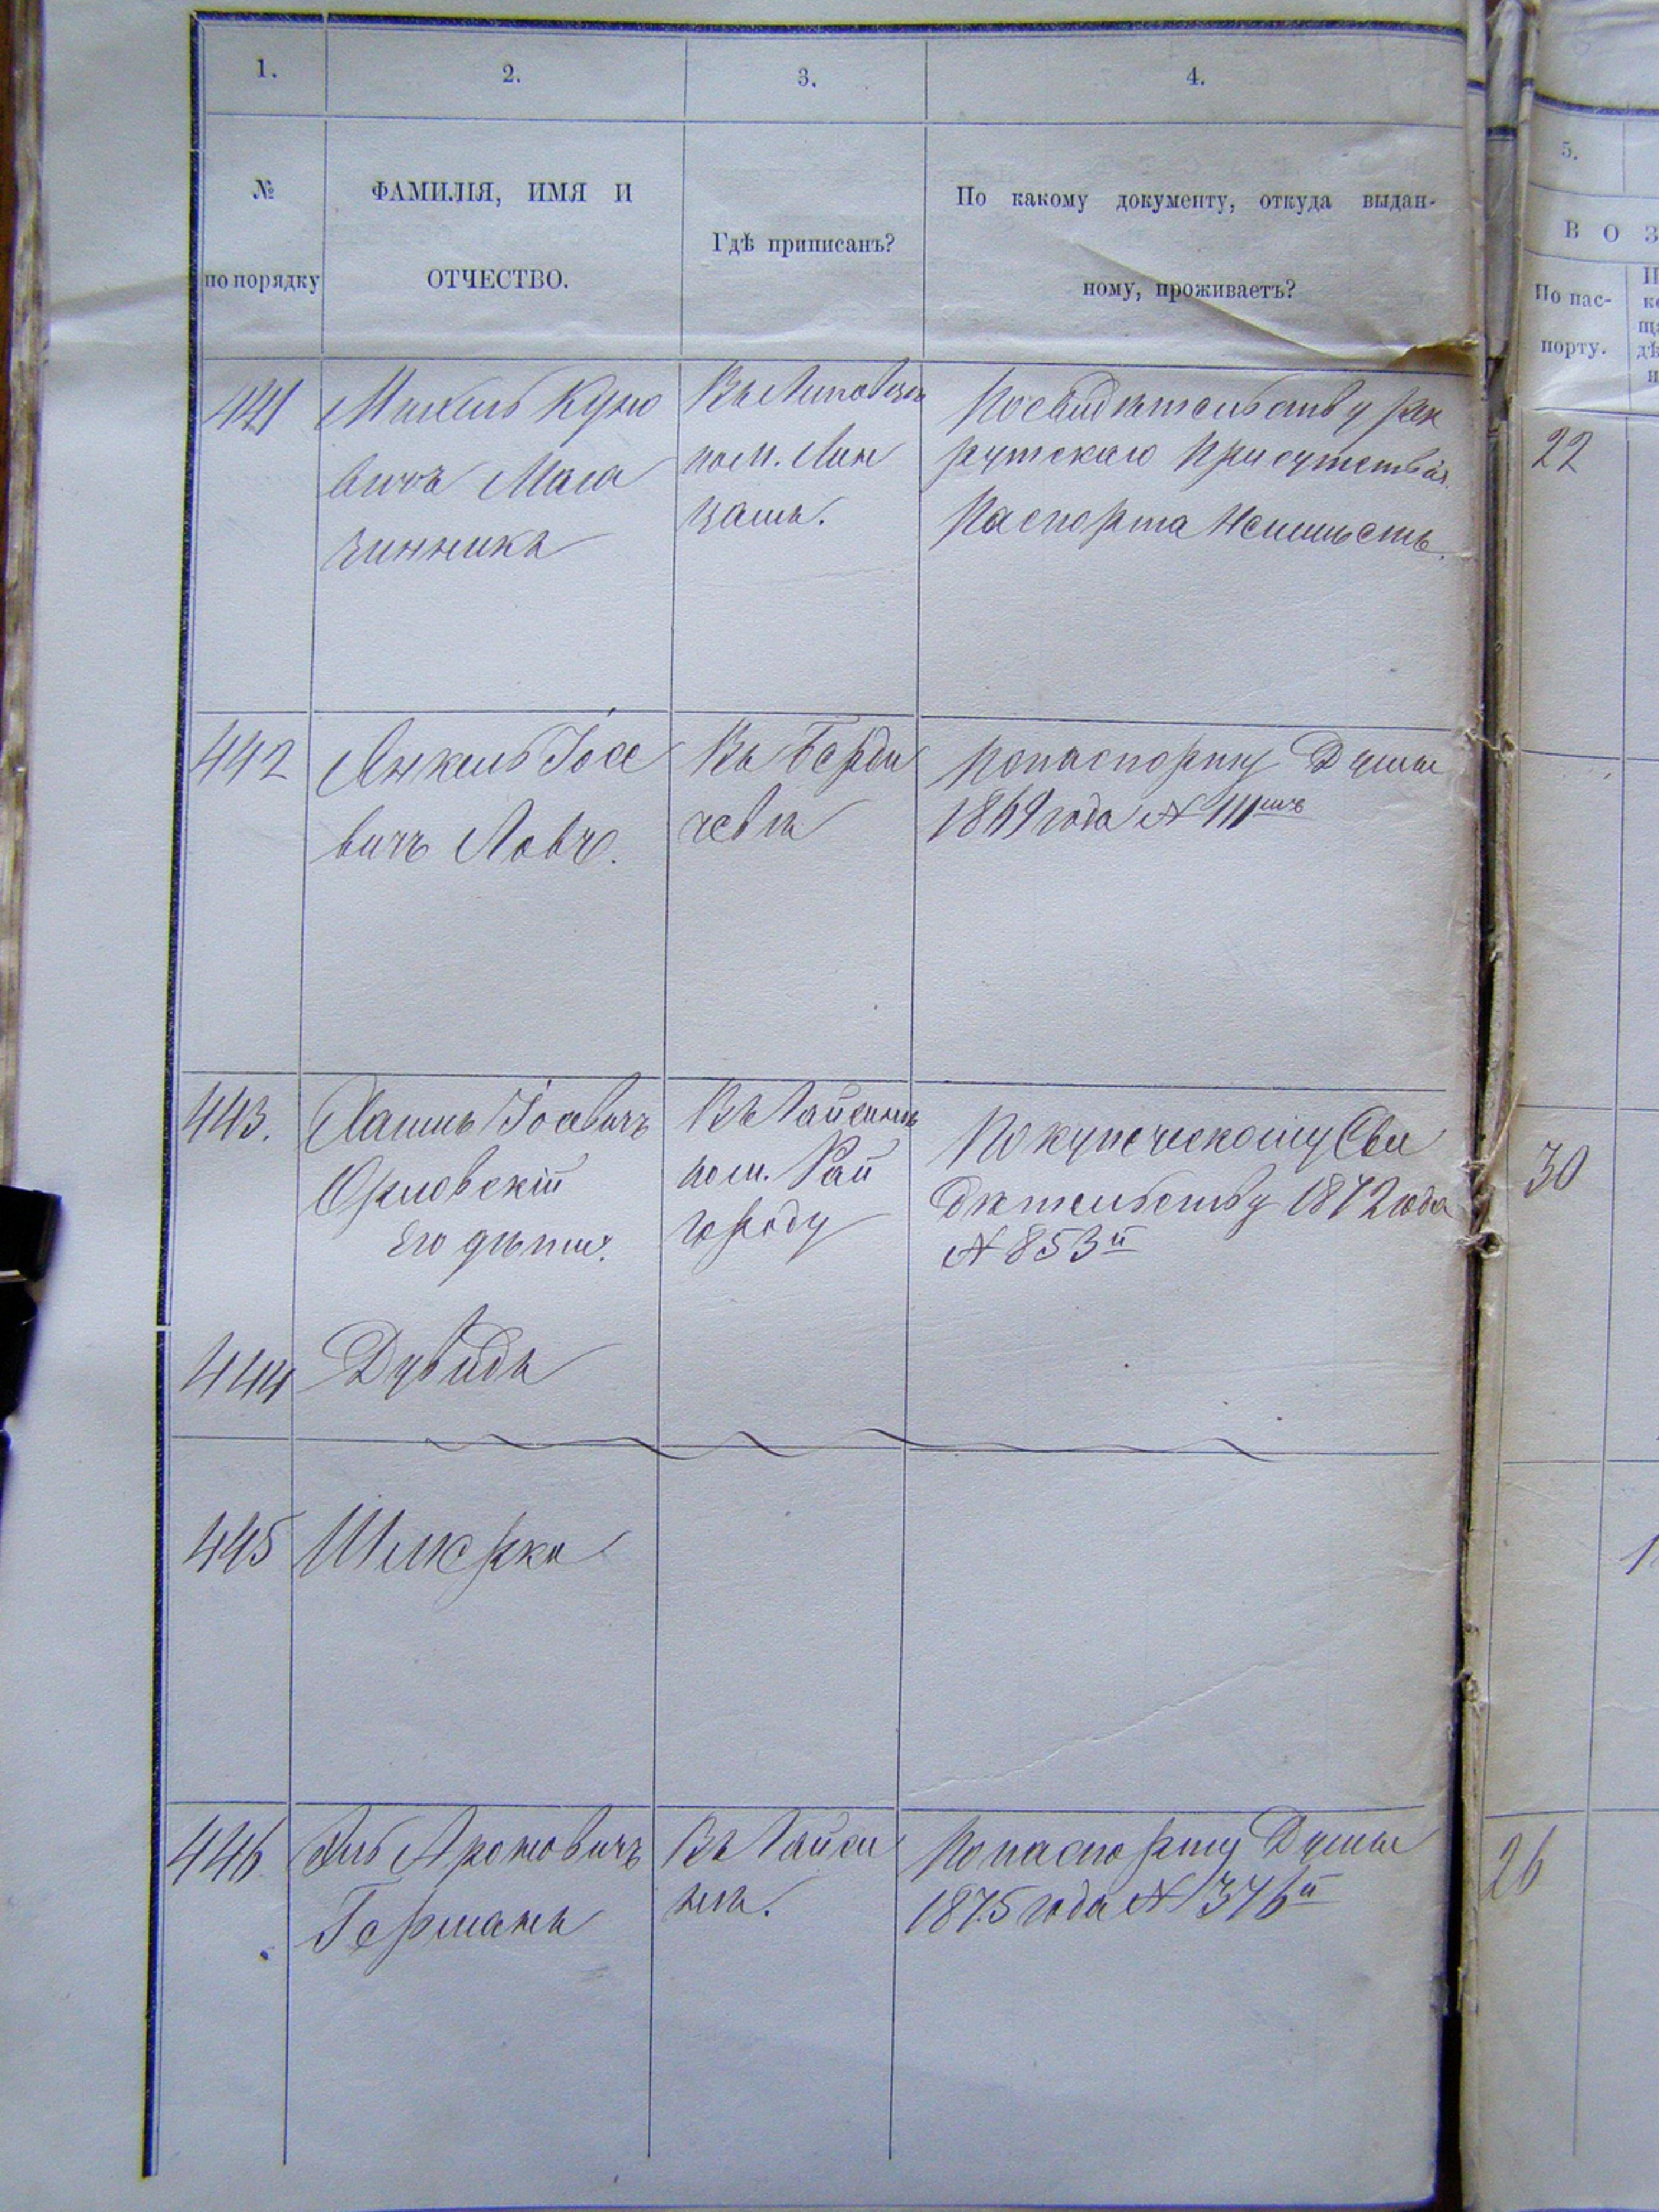 1.
2.
3.
4.
№
по порядку
ФАМИЛІЯ, ИМЯ И
ОТЧЕСТВО.
Гдѣ приписанъ?
По какому документу, откуда выдан-
ному, проживаетъ?
5.
ВОЗ
По пас-
порту.
441
Михель
вичъ Мага
зинникъ
Въ Липовцѣ
по м.
По свидѣтельству рек
рутскаго присутствія.
Паспорта неимѣетъ.
22
442
Янкель Іосе
вичъ
Въ Берди
чевѣ
По паспорту Думы
1869 года №
443.
Іосевичъ
Орловскій
Его дѣти:
Въ Гайсинѣ
по м. Рай
городу
По купеческому Сви
дѣтельству 1872 года
№ 853й
30
444
Дувидъ
445
Шмерко
446
Ароновичъ
Германъ
Въ Гайси
нѣ.
По паспорту Думы
1875 года № 1346й
26